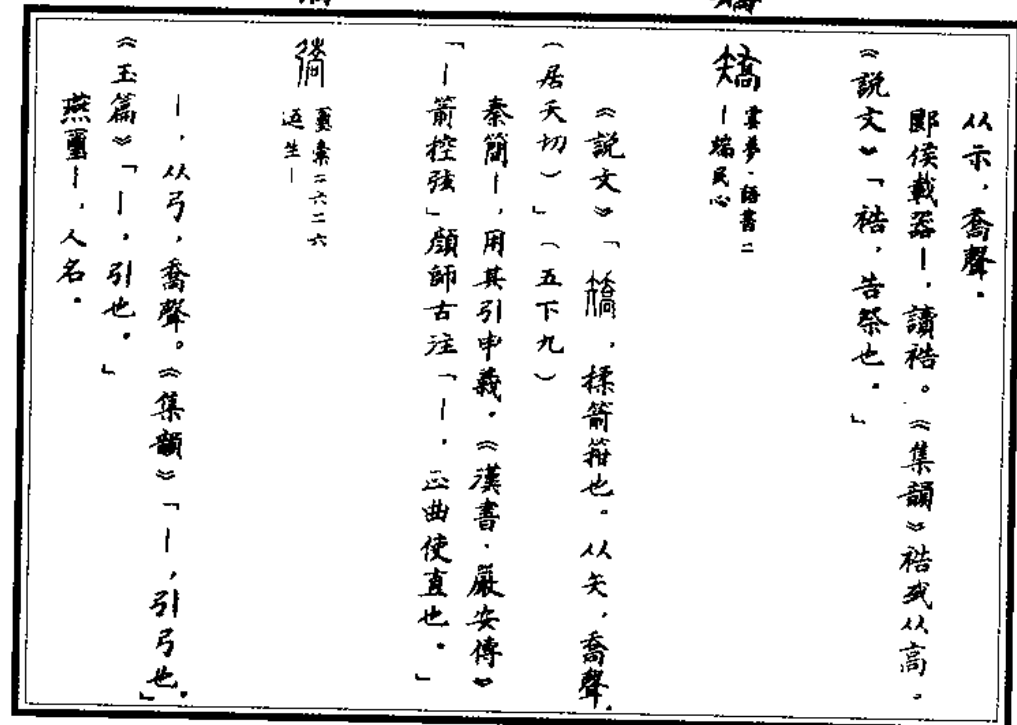 从示，喬聲．
郾侯載器｜，讀祰。《集韻》祰或从高．
《説文》「祰，告祭也．」
矯
雲夢·語書二
｜端民心
《説文》「矯，揉箭箝也。从矢，喬聲．
（居夭切）」（五下九）
秦簡｜，用其引申義．《漢書·嚴安傳》
「｜箭控弦」顔師古注「｜，正曲使直也．」
璽彙二六二六
生｜
｜，从弓，喬聲。《集韻》「｜，引弓也．」
《玉篇》「｜，引也．」
燕璽｜，人名．